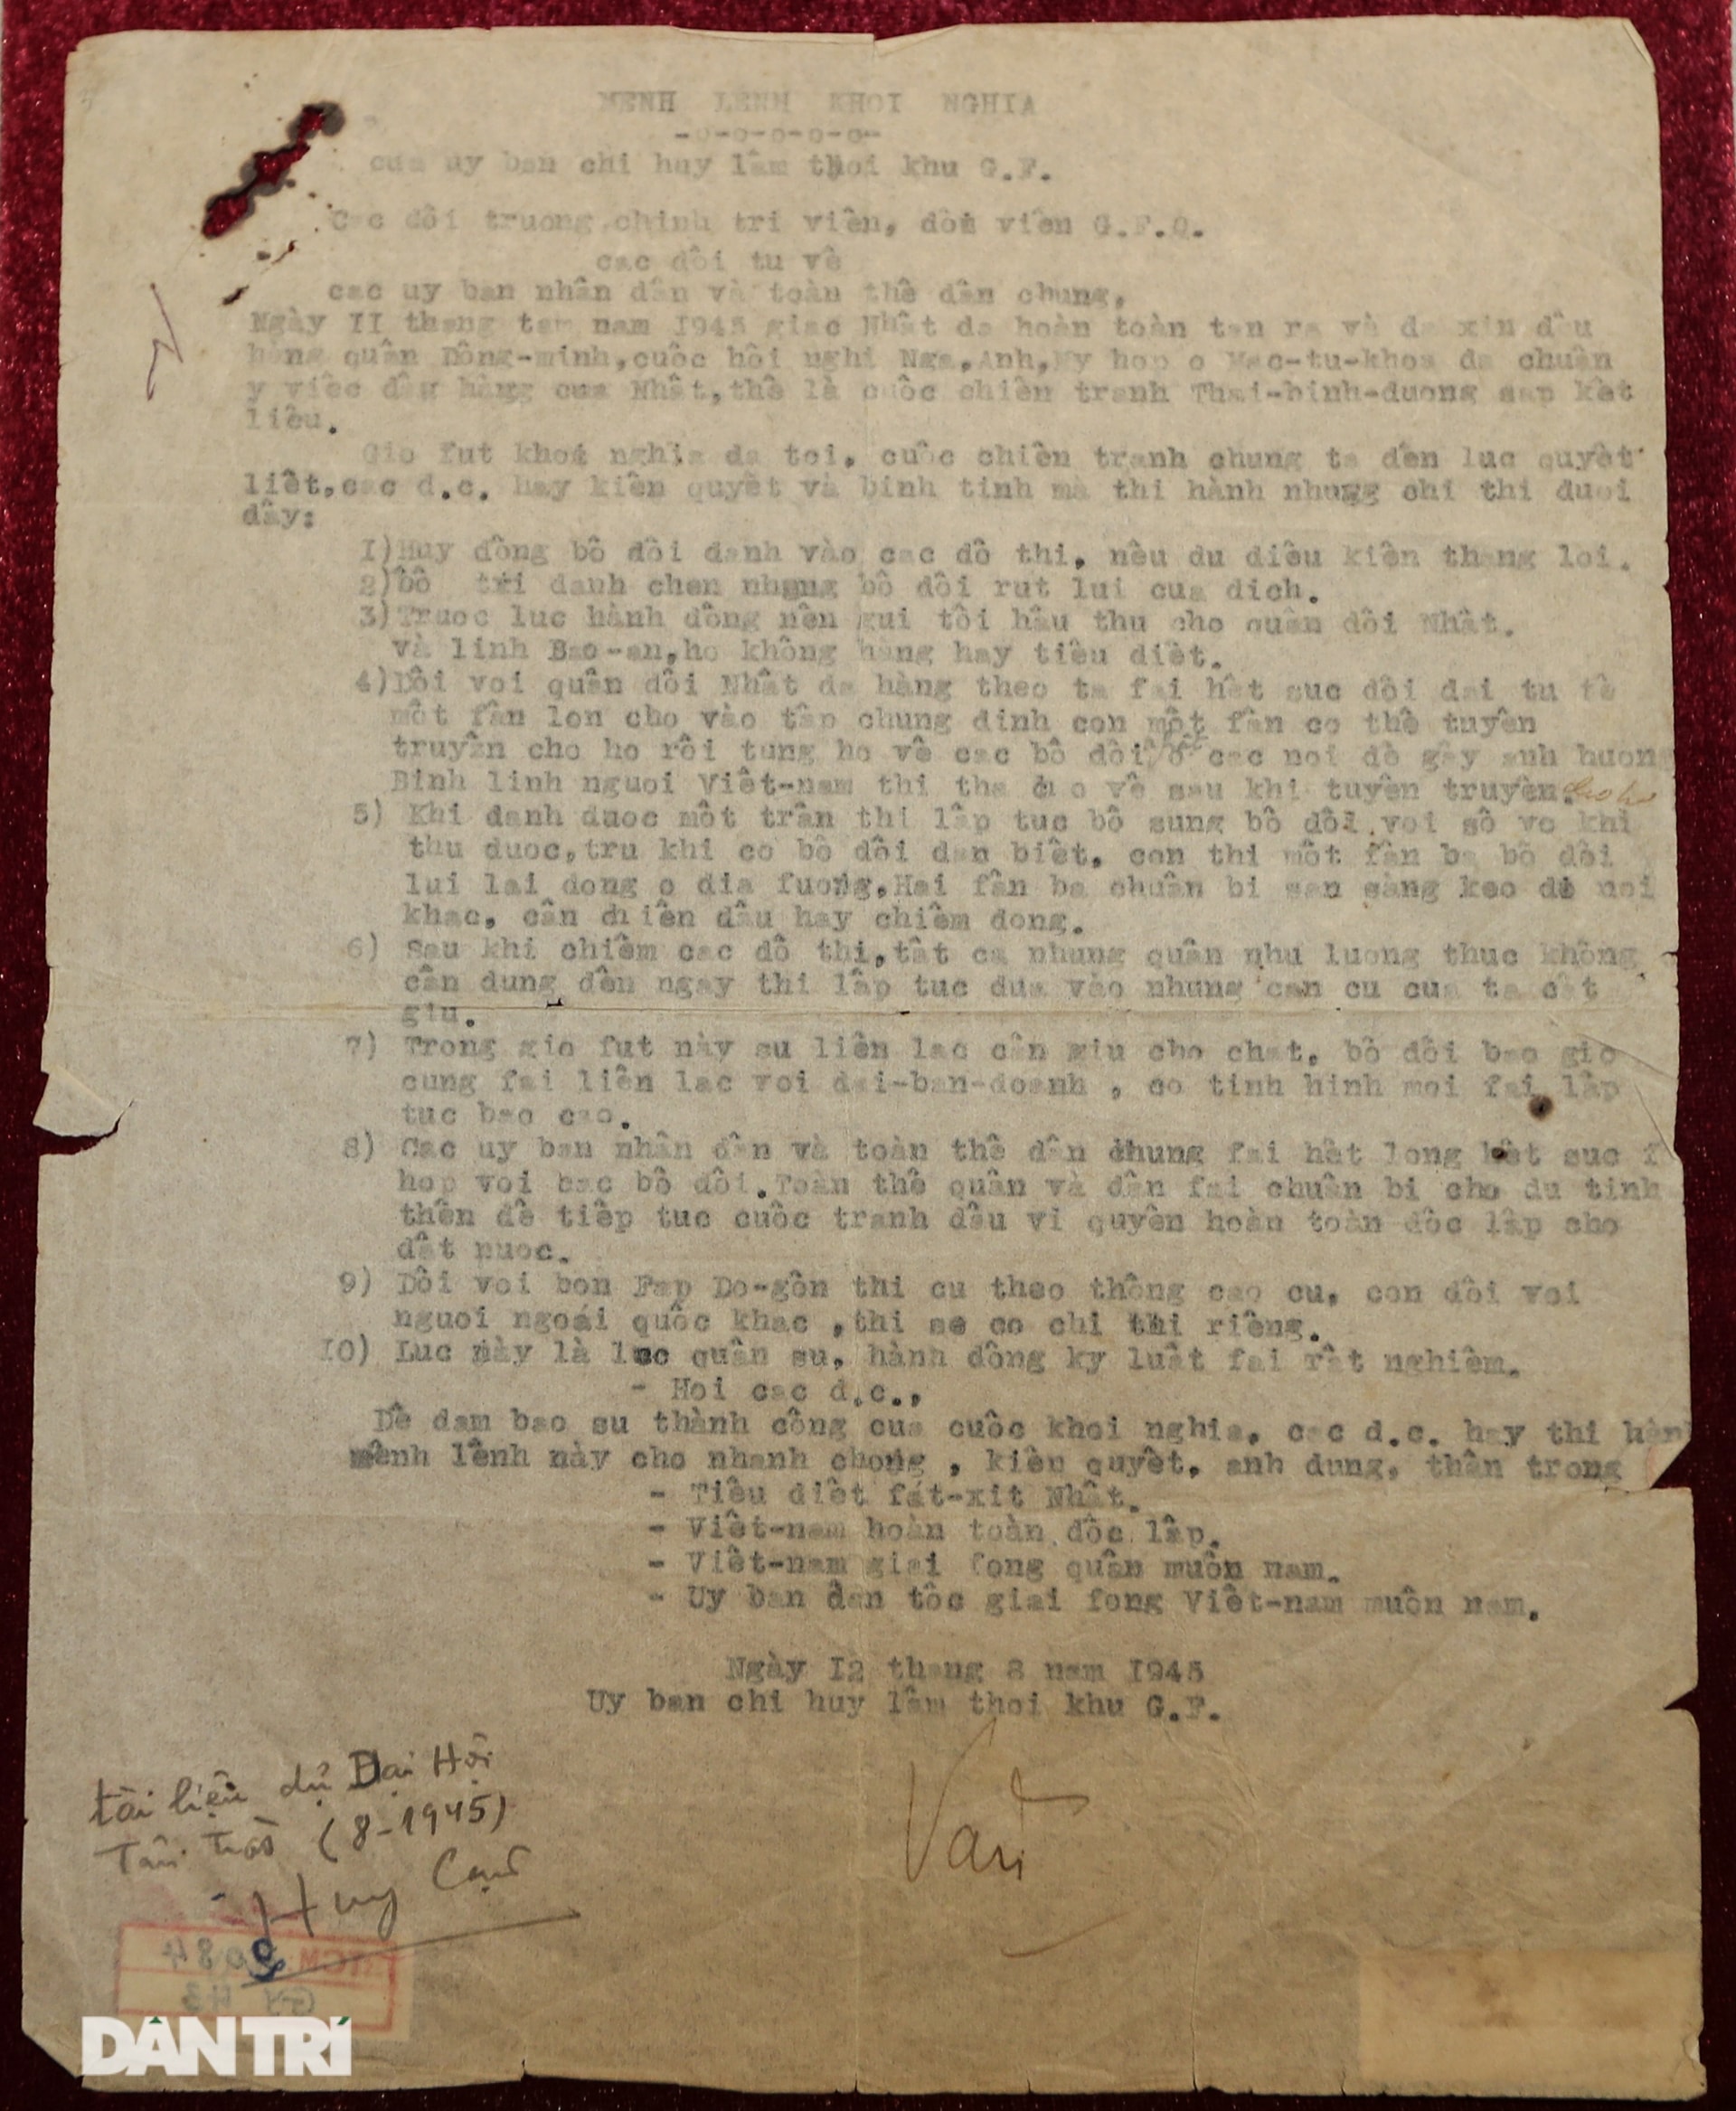 MENH LENH KHOI NGHIA
-o-o-o-o-o-
cua uy ban chi huy lâm thoi khu G.F.
Cac dôi truong,chinh tri viên, dôi viên G.F.Q.
cac dôi tu vê
cac uy ban nhân dân và toàn thê dân chung,
Ngày II thang tam nam 1945 giac Nhât da hoàn toàn tan ra và da xin dâu
hang quân Dông-minh,cuôc hôi nghi Nga,Anh,My hop o Mac-tu-khoa da chuân
y viêc dâu hàng cua Nhât,thê là cuôc chiên tranh Thai-binh-duong sap kêt
liêu.
Gio fut khoi nghia da toi, cuôc chiên tranh chung ta dên luc quyêt
liêt,cac d.c. hay kiên quyêt và binh tinh mà thi hành nhung chi thi duoi
dây:
I)Huy dông bô dôi danh vào cac dô thi, nêu du diêu kiên thang loi.
2)bô tri danh chen nhung bô dôi rut lui cua dich.
3)Truoc luc hành dông nên gui tôi hâu thu cho quân dôi Nhât.
và linh Bao-an,ho không hang hay tiêu diêt.
4)Dôi voi quân dôi Nhât da hàng theo ta fai hêt suc dôi dai tu tê
môt fân lon cho vào tâp chung dinh con môt fân co thê tuyên
truyên cho ho rôi tung ho vê cac bô dôi o cac noi dê gây anh huong
Binh linh nguoi Viêt-nam thi tha cho vê sau khi tuyên truyên. cho ho
5) Khi danh duoc môt trân thi lâp tuc bô sung bô dôi,voi sô vo khi
thu duoc,tru khi co bô dôi dan biêt, con thi môt fân ba bô dôi
lui lai dong o dia fuong,Hai fân ba chuân bi san sàng keo di noi
khac, cân chiên dâu hay chiêm dong.
6) Sau khi chiêm cac dô thi,tât ca nhung quân nhu luong thuc không
cân dung dên ngay thi lâp tuc dua vào nhung can cu cua ta cât
giu.
7) Trong gio fut này su liên lac cân giu cho chat, bô dôi bao gio
cung fai liên lac voi dai-ban-doanh , co tinh hinh moi fai lâp
tuc bao cao.
8) Cac uy ban nhân dân và toàn thê dân chung fai hêt long hêt suc f
hop voi cac bô dôi.Toàn thê quân và dân fai chuân bi cho du tinh
thên dê tiêp tuc cuôc tranh dâu vi quyên hoàn toàn dôc lâp cho
dât nuoc.
9) Dôi voi bon Fap Do-gôn thi cu theo thông cao cu, con dôi voi
nguoi ngoai quôc khac ,thi se co chi thi riêng.
IO) Luc này là luc quân su, hành dông ky luât fai rât nghiêm.
- Hoi cac d.c.,
Dê dam bao su thành công cua cuôc khoi nghia, cac d.c. hay thi hành
mênh lênh này cho nhanh chong , kiên quyêt, anh dung, thân trong
- Tiêu diêt fát-xit Nhât.
- Viêt-nam hoàn toàn dôc lâp.
- Viêt-nam giai fong quân muôn nam.
- Uy ban dan tôc giai fong Viêt-nam muôn nam.
Ngày I2 thang 8 nam 1945
Uy ban chi huy lâm thoi khu G.F.
Văn
tài liệu dự Đại Hội
Tân Trào (8-1945)
Huy Cận
HCM 2084
GY 43
DÂN TRÍ